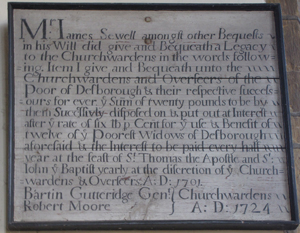 Mr. Iames Sewell amongst other Bequests
in his Will did give and Bequeath a Legacy
to the Churchwardens in the words follow-
ing, Item I give and Bequeath unto the
Churchwardens and Overseers of the
Poor of Desborough & their respective succes-
ours for ever, ye Sum of twenty pounds to be by
them Successively disposed on & put out at Interest
after ye rate of six lb p Cent for ye use & Benefit of
twelve of ye Poorest Widows of Desborough
aforesaid & the Interest to be paid every half
year at the feast of St. Thomas the Apostle and St.
Iohn ye Baptist yearly at the discretion of ye Church-
wardens & Overseers A: D: 1701.
Bartin Gutteridge Gent } Churchwardens
Robert Moore } A: D: 1724